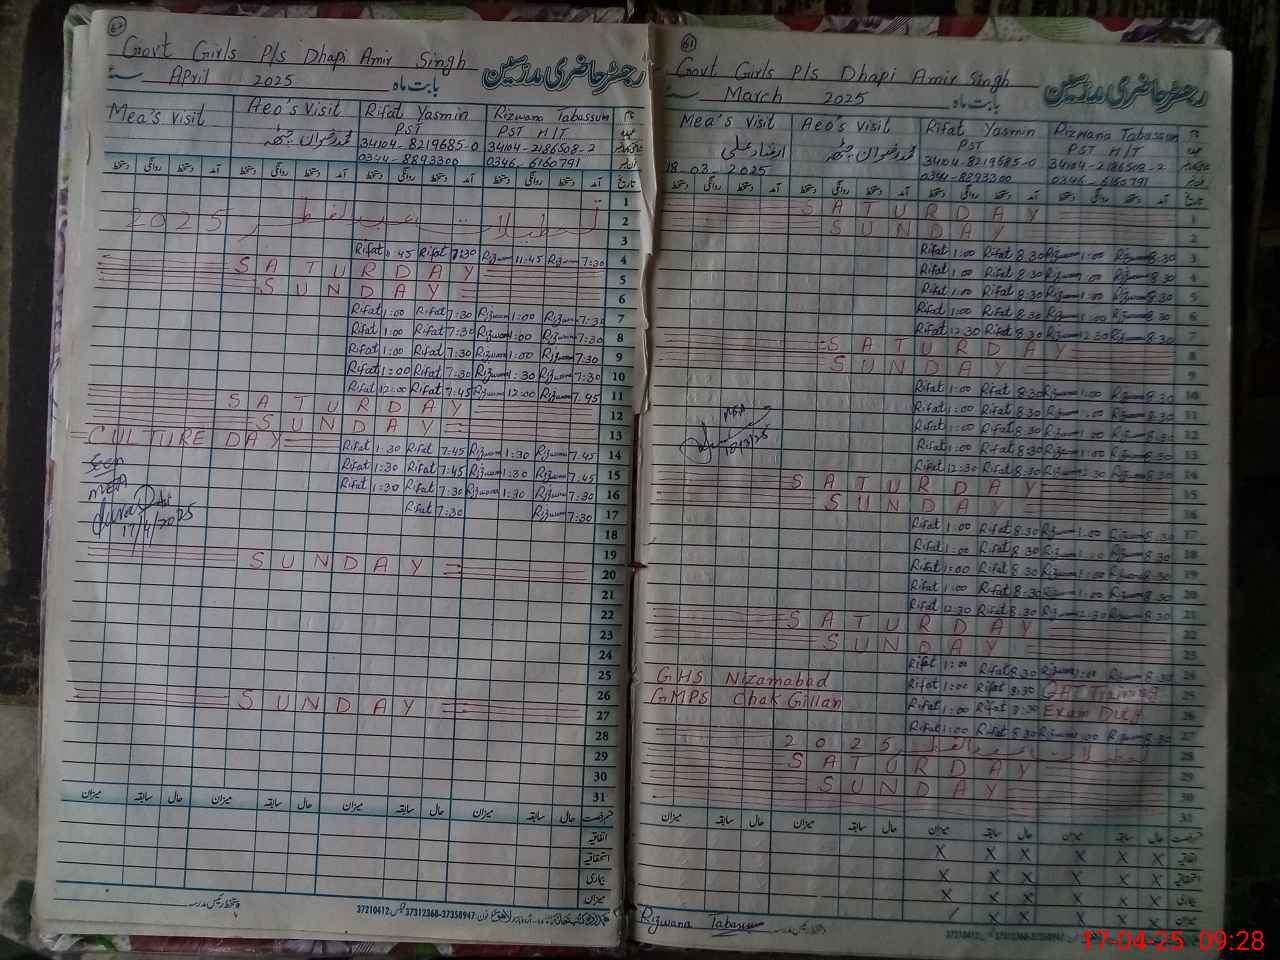 Govt Girls P/s Dhapi Amir Singh
رجسٹر حاضری مدرسین
April 2025 بابت ماہ
Mea's visit Aeo's visit Rifat Yasmin Rizwana Tabassum
PST PST HIT
محمد رضوان چٹھہ 34104-8219685-0 34104-2186508-2
0344-8893300 0346-6160791
1
2 2025
3
4 Rifat 11:45 Rifat 7:30 Rizwana 11:45 Rizwana 7:30
5 SATURDAY
6 SUNDAY
7 Rifat 1:00 Rifat 7:30 Rizwana 1:00 Rizwana 7:30
8 Rifat 1:00 Rifat 7:30 Rizwana 1:00 Rizwana 7:30
9 Rifat 1:00 Rifat 7:30 Rizwana 1:00 Rizwana 7:30
10 Rifat 1:00 Rifat 7:30 Rizwana 1:30 Rizwana 7:30
11 Rifat 12:00 Rifat 7:45 Rizwana 12:00 Rizwana 7:45
12 SATURDAY
13 SUNDAY
14 CULTURE DAY Rifat 1:30 Rifat 7:45 Rizwana 1:30 Rizwana 7:45
15 Seen Rifat 1:30 Rifat 7:45 Rizwana 1:30 Rizwana 7:45
16 MEA Rifat 1:30 Rifat 7:30 Rizwana 1:30 Rizwana 7:30
17 17/4/2025 Rifat 7:30 Rizwana 7:30
18
19
20 SUNDAY
21
22
23
24
25
26
27 SUNDAY
28
29
30
31
میزان سابقہ حال میزان سابقہ حال میزان سابقہ حال میزان سابقہ حال
اتفاقیہ
استحقاقیہ
بیماری
میزان
37210412 37312368-37358947
61
Govt Girls P/s Dhapi Amir Singh
رجسٹر حاضری مدرسین
March 2025 بابت ماہ
Mea's visit Aeo's visit Rifat Yasmin Rizwana Tabassum
PST PST HIT
ارشاد علی محمد رضوان چٹھہ 34104-8219685-0 34104-2186508-2
18-03-2025 0344-8893300 0346-6160791
1 SATURDAY
2 SUNDAY
3 Rifat 1:00 Rifat 8:30 Rizwana 1:00 Rizwana 8:30
4 Rifat 1:00 Rifat 8:30 Rizwana 1:00 Rizwana 8:30
5 Rifat 1:00 Rifat 8:30 Rizwana 1:00 Rizwana 8:30
6 Rifat 1:00 Rifat 8:30 Rizwana 1:00 Rizwana 8:30
7 Rifat 12:30 Rifat 8:30 Rizwana 12:30 Rizwana 8:30
8 SATURDAY
9 SUNDAY
10 Rifat 1:00 Rifat 8:30 Rizwana 1:00 Rizwana 8:30
11 Rifat 1:00 Rifat 8:30 Rizwana 1:00 Rizwana 8:30
12 MEA Rifat 1:00 Rifat 8:30 Rizwana 1:00 Rizwana 8:30
13 Rifat 1:00 Rifat 8:30 Rizwana 1:00 Rizwana 8:30
14 Rifat 12:30 Rifat 8:30 Rizwana 12:30 Rizwana 8:30
15 SATURDAY
16 SUNDAY
17 Rifat 1:00 Rifat 8:30 Rizwana 1:00 Rizwana 8:30
18 Rifat 1:00 Rifat 8:30 Rizwana 1:00 Rizwana 8:30
19 Rifat 1:00 Rifat 8:30 Rizwana 1:00 Rizwana 8:30
20 Rifat 1:00 Rifat 8:30 Rizwana 1:00 Rizwana 8:30
21 Rifat 12:30 Rifat 8:30 Rizwana 12:30 Rizwana 8:30
22 SATURDAY
23 SUNDAY
24 Rifat 1:00 Rifat 8:30 Rizwana 1:00 Rizwana 8:30
25 GHS Nizamabad Rifat 1:00 Rifat 8:30 Training
26 GMPS Chak Gillan Rifat 1:00 Rifat 8:30 Exam Duty
27 Rifat 1:00 Rifat 8:30 Rizwana 1:00 Rizwana 8:30
28 2025
29 SATURDAY
30 SUNDAY
میزان سابقہ حال میزان سابقہ حال میزان سابقہ حال میزان سابقہ حال
X X X X X X
X X X X X X
X X X X X
X X X X X
Rizwana Tabassum
37210412 37312368-37358947
17-04-25 09:28